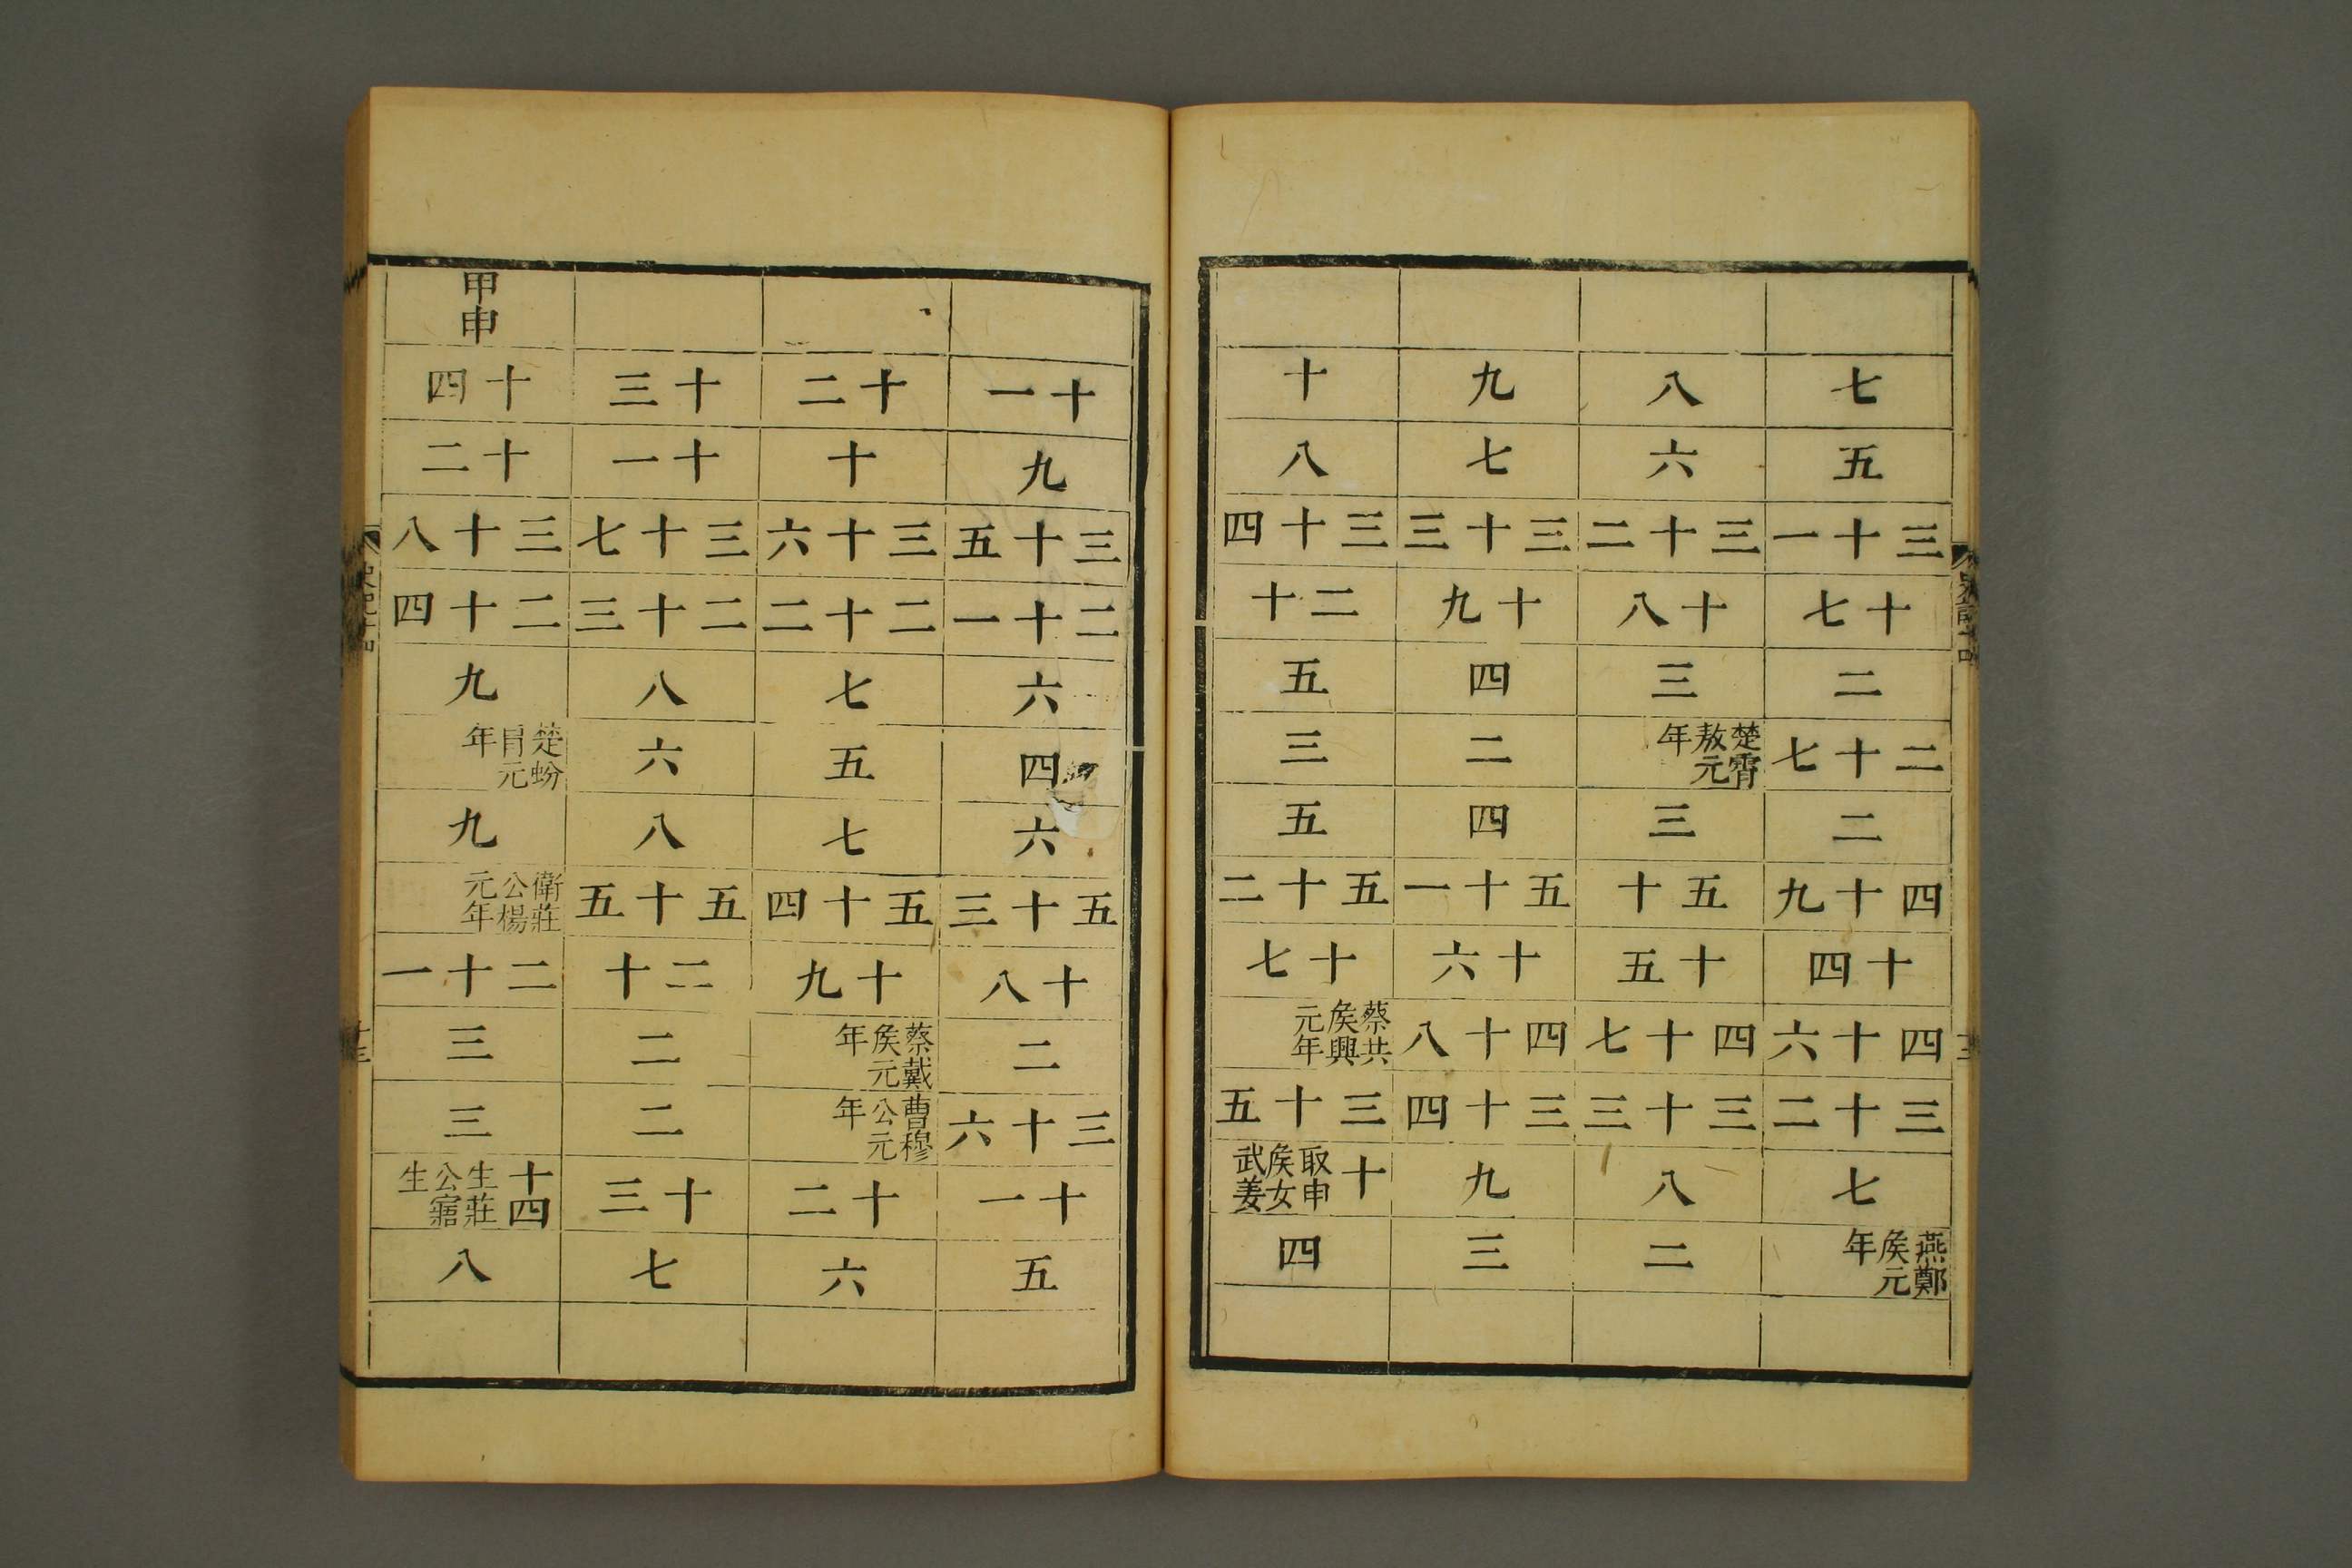 七
五
三十一
十七
二
二十七
二
四十九
十四
四十六
三十二
七
燕鄭矦元年
八
六
三十二
十八
三
楚霄敖元年
三
五十
十五
四十七
三十三
八
二
九
七
三十三
十九
四
二
四
五十一
十六
四十八
三十四
九
三
十
八
三十四
二十
五
三
五
五十二
十七
蔡共矦興元年
三十五
十取申矦女武姜
四
十一
九
三十五
二十一
六
四
六
五十三
十八
二
三十六
十一
五
十二
十
三十六
二十二
七
五
七
五十四
十九
蔡戴矦元年
曹穆公元年
十二
六
十三
十一
三十七
二十三
八
六
八
五十五
二十
二
二
十三
七
甲申
十四
十二
三十八
二十四
九
楚蚡冐元年
九
衛莊公楊元年
二十一
三
三
十四生莊公寤生
八